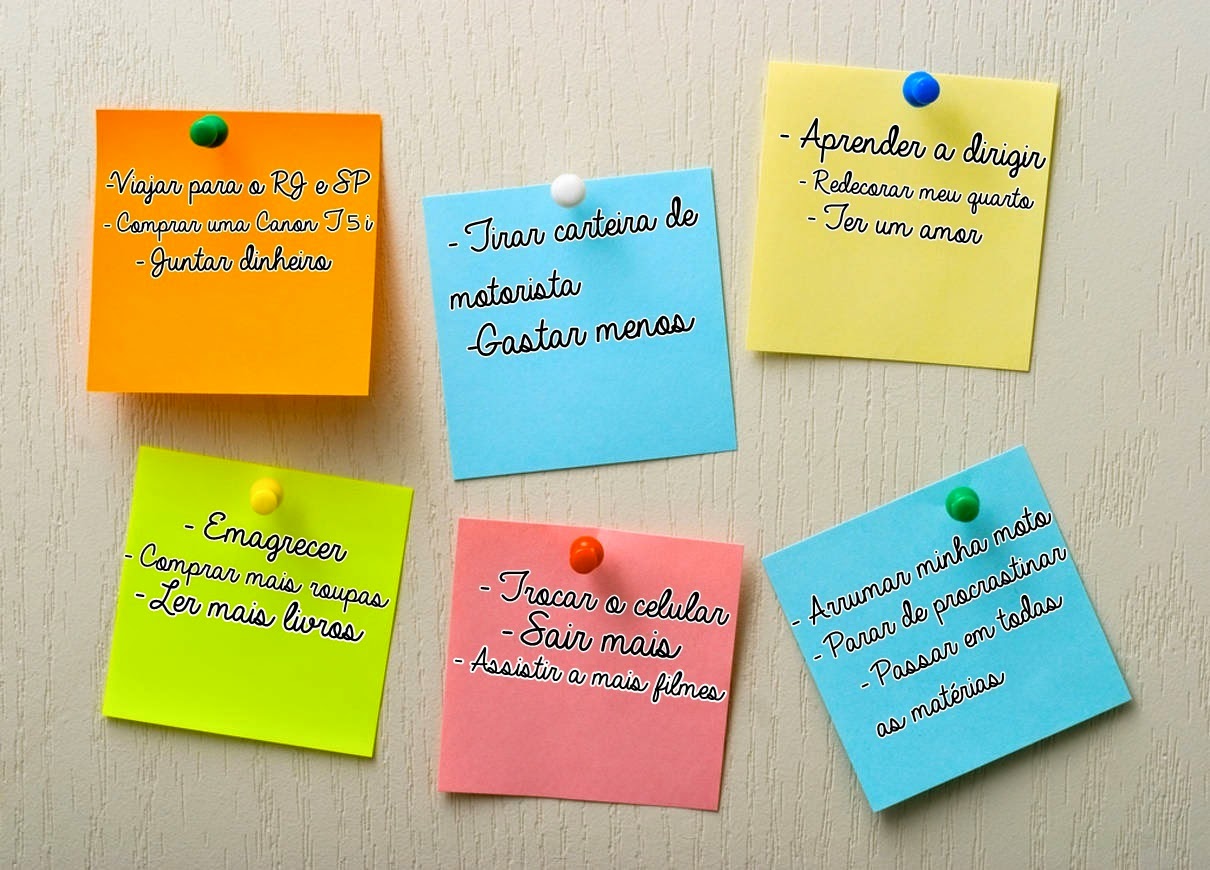 -Viajar para o RJ e SP
- Comprar uma Canon T5i
- Juntar dinheiro
- Tirar carteira de
motorista
-Gastar menos
- Aprender a dirigir
- Redecorar meu quarto
- Ter um amor
- Emagrecer
- Comprar mais roupas
- Ler mais livros
- Trocar o celular
- Sair mais
- Assistir a mais filmes
- Arrumar minha moto
- Parar de procrastinar
- Passar em todas
as matérias